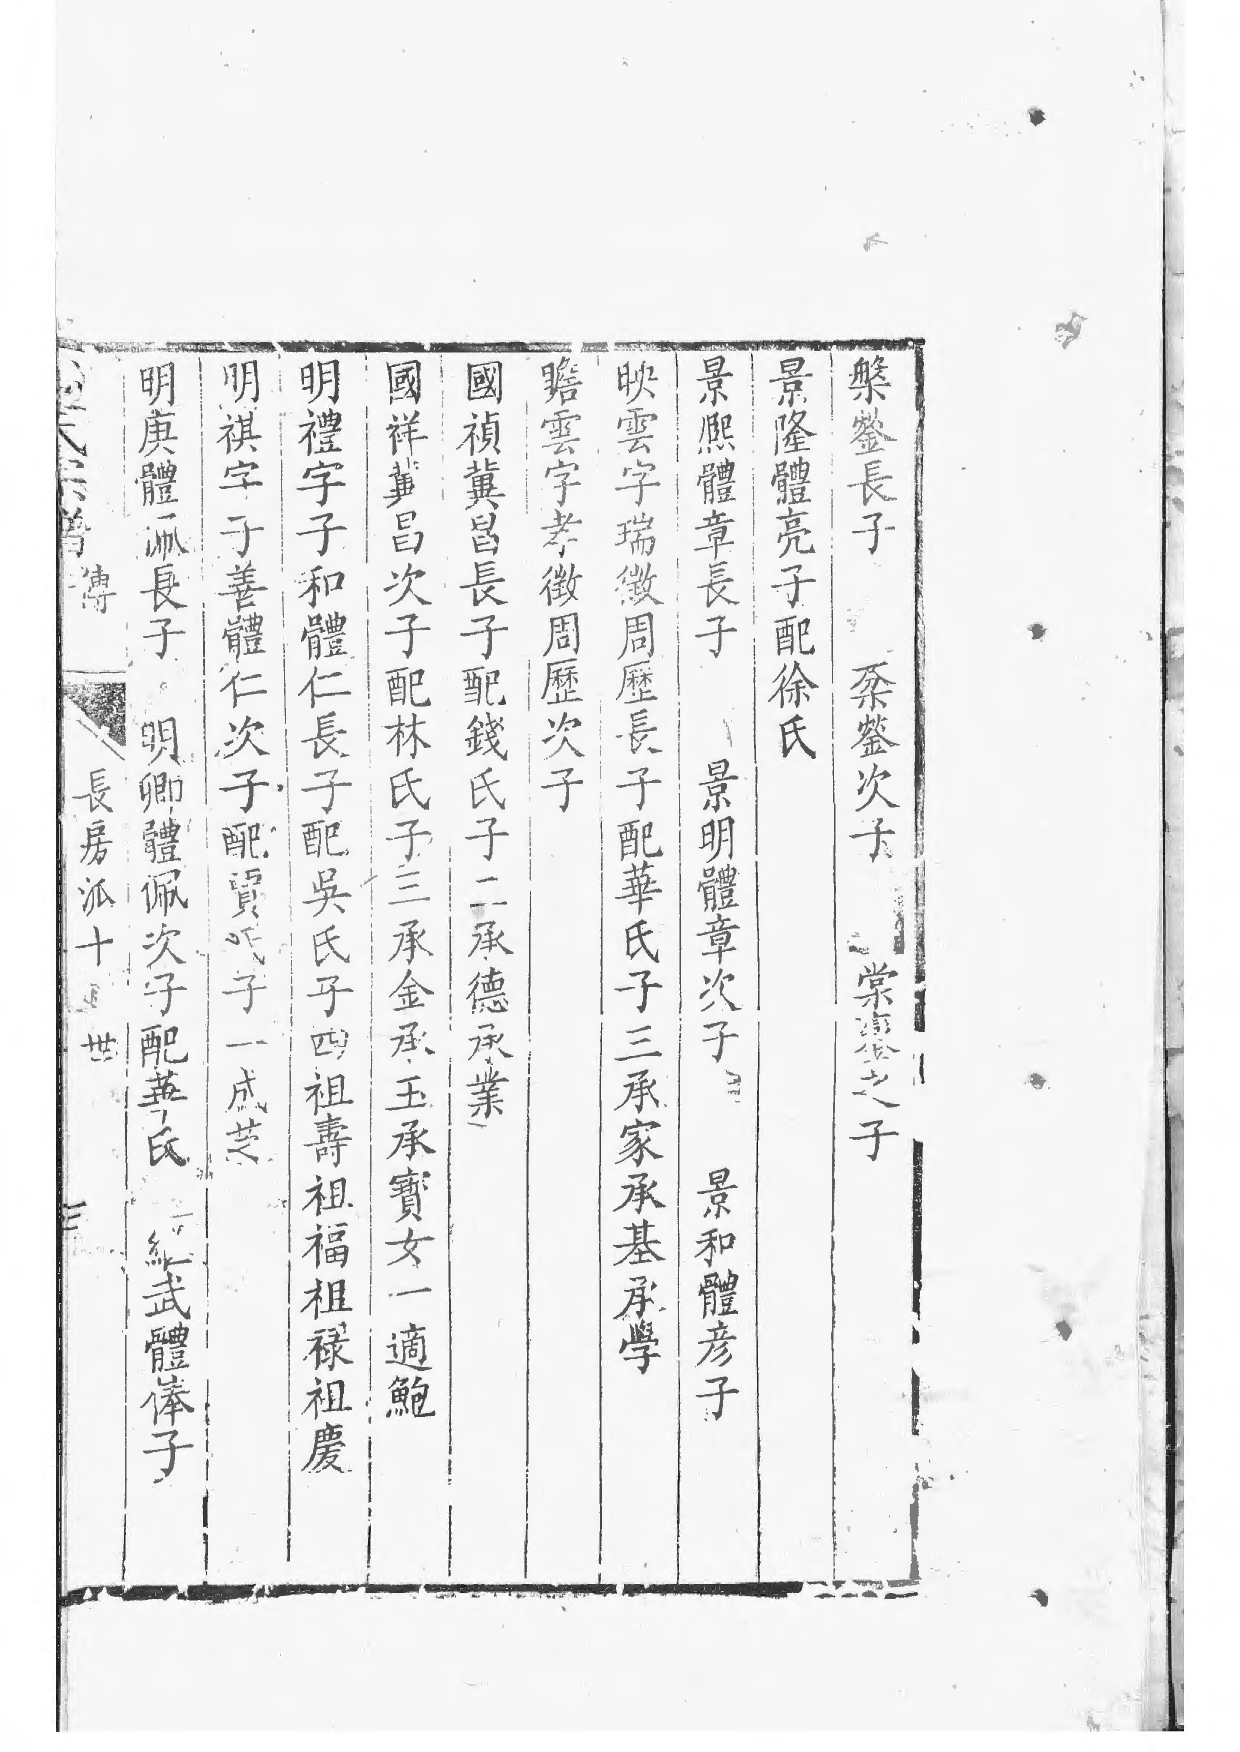 槃鎣長子　桼鎣次子　棠鎏之子
景隆體亮子配徐氏
景熈體章長子　景明體章次子　景和體彦子
映雲字瑞徵周歷長子配華氏子三承家承基承學
瞻雲字孝徵周歷次子
國禎冀昌長子配錢氏子二承德承業
國祥冀昌次子配林氏子三承金承玉承寶女一適鮑
明禮字子和體仁長子配吳氏子四祖壽祖福祖禄祖慶
明祺字子善體仁次子配賈氏子一成芝
明庚體佩長子　明卿體佩次子配華氏　經武體俸子
氏宗譜　傳　長房派十世　三